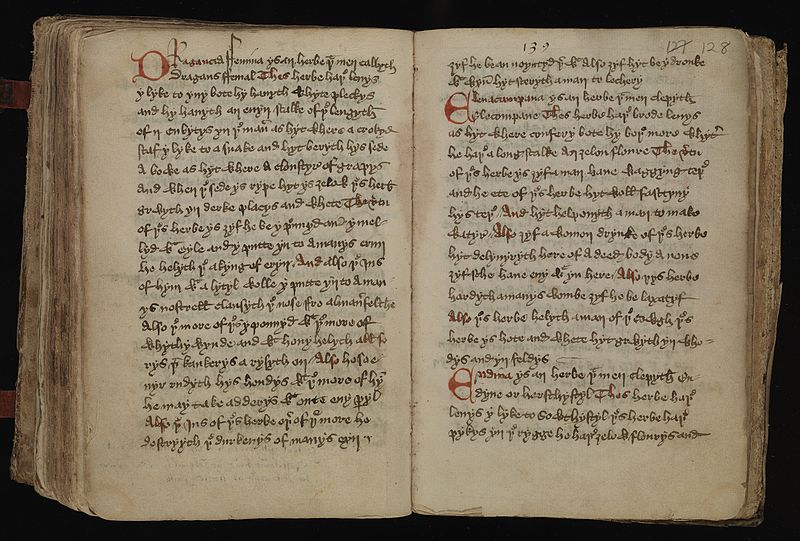 Dragancia ffemina ys an herbe þt men callyth
Dragans ffemal Thes herbe haþ levys
y lyke to yny bote hy haueth whyte pleckys
and hy haueth an evyn stalke of þe lengyth
of ii cubytys yn þe maner as hyt where a
staf y lyke to a snake and hyt beryth hys sede
a bove as hyt where a clonstyr of grapys
and when þe sede ys rype hyt ys zelow þs herbe
growyth yn derke placys and whete The vtu
of þs herbe ys zyf he be y and y mel-
lyd wt eyle and y putte yn to a manys
he helyth þe akyng of eryn And also þe jus
of hym wt a lytyl wolle y putte yn to a man-
ys nostrell clansyth þe nose fro al maner felthe
Also þe more of þs y pownyd wt þe more of
whythy wynde and wt hony helyth also
ys þe kankerys a rysyth on Also hoso e-
uyr rubyth hys hondys wt þe more of hyt
he may take adderys wt oute eny pyl
Also þe jus of þs herbe oþer of þe more he
destryyth þe durkenys of manys eyn
139 127 128
zyf he be an noyntyd þer wt Also zyf hyt be y dronke
wt wyn hyt steryth a man to lechery
Elenacompana ys an herbe þt men clepyth
Elecompane Thes herbe haþ brode levys
as hyt where confery bote hy beþ more whyte
he haþ a long stalke an zelou floure The vtu
of þs herbe ys zyf a man have wagging teþ
and he ete of þs herbe hyt woll fastyny
hys teþ And hyt helpenyth a man to make
watyr Also zyf a woman drynke of þs herbe
hyt delyueryth here of a deed body a none
zyf sche have eny wt yn here Also þys herbe
hardyth a manys wombe zyf he be laxatyf
Also þs herbe helyth a man of þe cowgh þs
herbe ys hote and whete hyt growyth yn
dys and yn feldys
Endiua ys an herbe þt men clepyth en
dyue or horsthystyl Thes herbe haþ
levys y lyke to sowthystyl þs herbe haþ
pykys yn þe rygge he haþ zelow flourys and